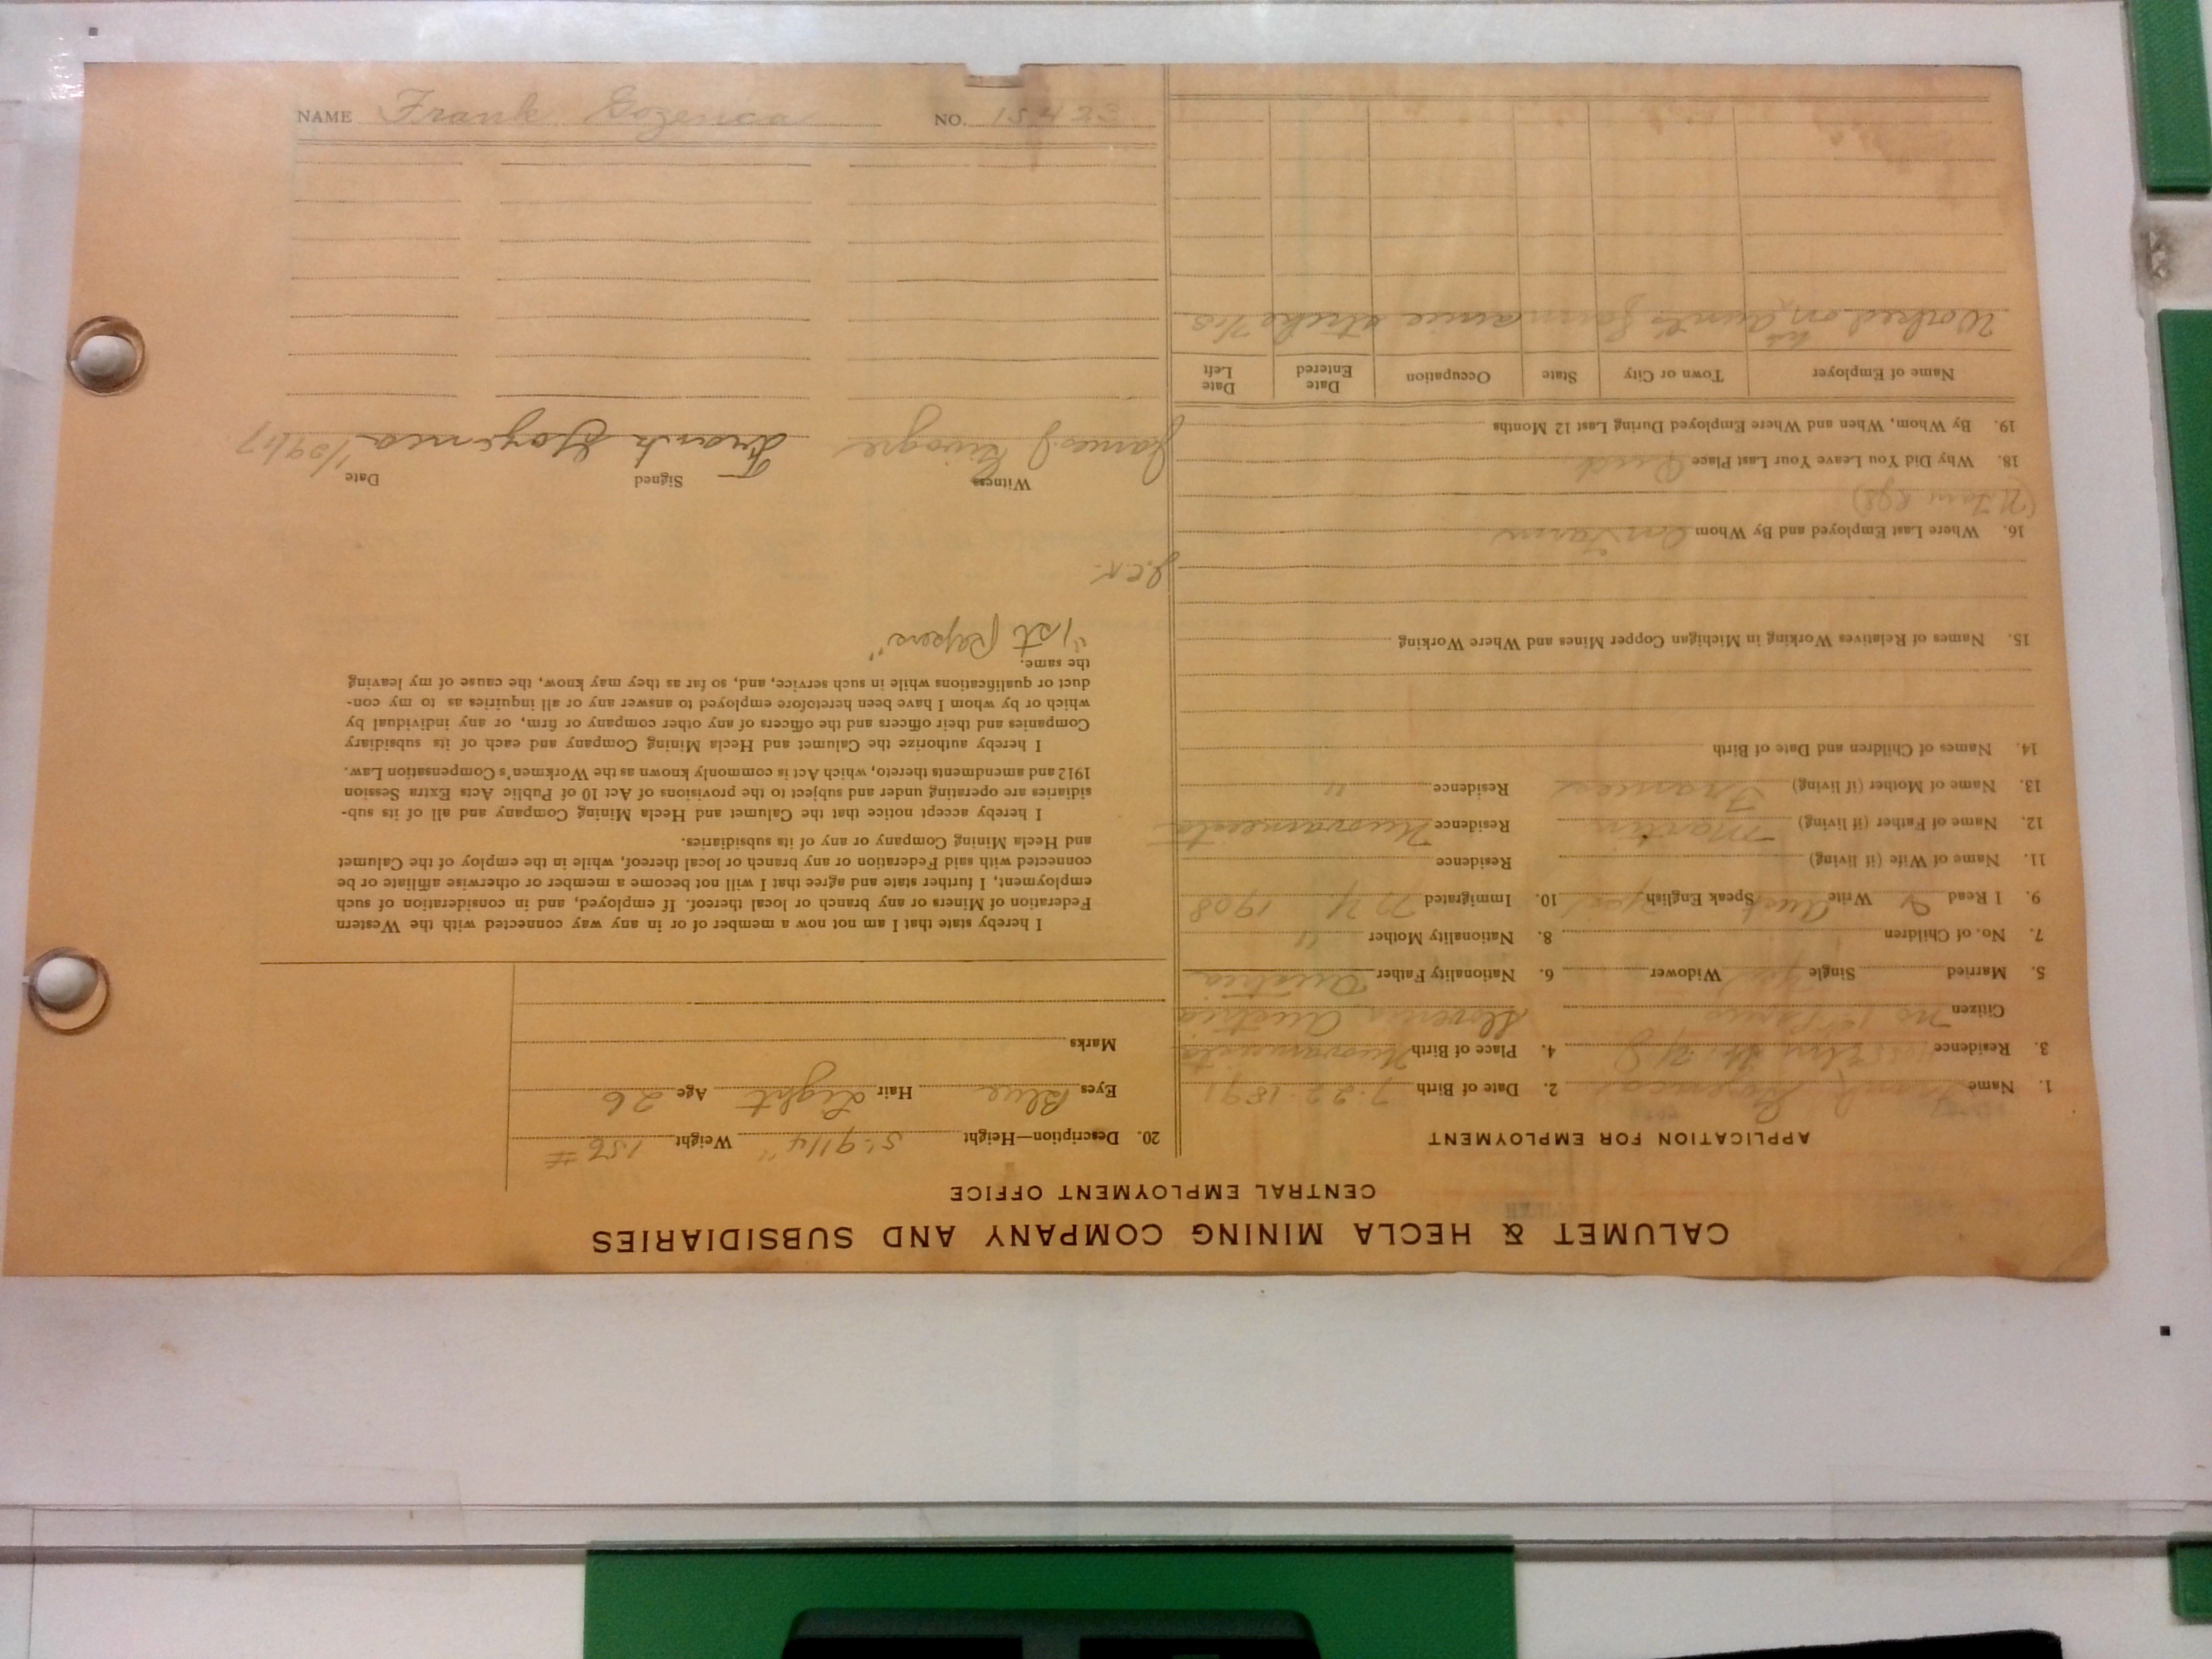 CALUMET & HECLA MINING COMPANY AND SUBSIDIARIES
CENTRAL EMPLOYMENT OFFICE
APPLICATION FOR EMPLOYMENT
1. Name Frank 2. Date of Birth 7-22-1891
3. Residence 4. Place of Birth
Citizen no 1st Papers Slovenia Austria
5. Married Single yes Widower 6. Nationality Father Austria
7. No. of Children 8. Nationality Mother "
9. I Read & Write Aust Speak English yes 10. Immigrated 1908
11. Name of Wife (if living) Residence
12. Name of Father (if living) Martin Residence
13. Name of Mother (if living) Frances Residence "
14. Names of Children and Date of Birth
15. Names of Relatives Working in Michigan Copper Mines and Where Working
16. Where Last Employed and By Whom On Farm
18. Why Did You Leave Your Last Place Quit
19. By Whom, When and Where Employed During Last 12 Months
Name of Employer Town or City State Occupation Date Entered Date Left
Worked on his Aunt's farm since strike 7/13
20. Description—Height 5'-9 1/4" Weight 156 #
Eyes Blue Hair Light Age 26
Marks
I hereby state that I am not now a member of or in any way connected with the Western
Federation of Miners or any branch or local thereof. If employed, and in consideration of such
employment, I further state and agree that I will not become a member or otherwise affiliate or be
connected with said Federation or any branch or local thereof, while in the employ of the Calumet
and Hecla Mining Company or any of its subsidiaries.
I hereby accept notice that the Calumet and Hecla Mining Company and all of its sub-
sidiaries are operating under and subject to the provisions of Act 10 of Public Acts Extra Session
1912 and amendments thereto, which Act is commonly known as the Workmen's Compensation Law.
I hereby authorize the Calumet and Hecla Mining Company and each of its subsidiary
Companies and their officers and the officers of any other company or firm, or any individual by
which or by whom I have been heretofore employed to answer any or all inquiries as to my con-
duct or qualifications while in such service, and, so far as they may know, the cause of my leaving
the same.
"1st Papers"
J.C.K.
Witness Signed Date
James J Frank 1/29/17
NAME Frank Gozenca NO. 15423